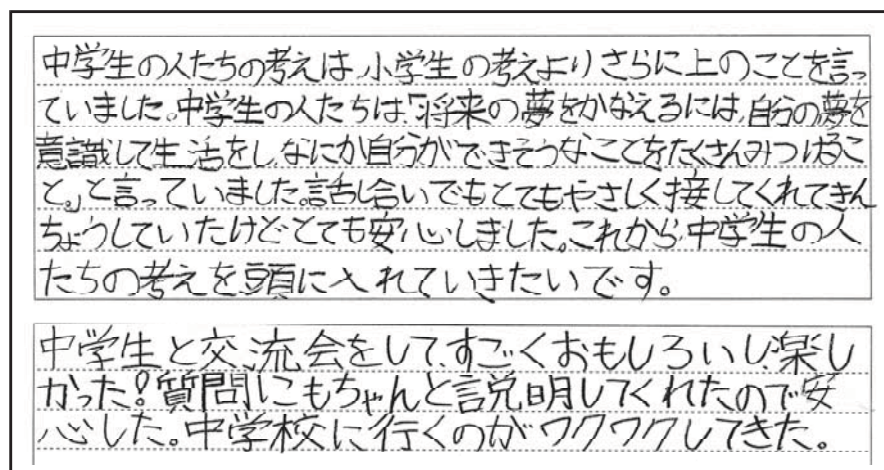 中学生の人たちの考えは、小学生の考えよりさらに上のことを言っ
ていました。中学生の人たちは、「将来の夢をかなえるには、自分の夢を
意識して生活をし、なにか自分ができそうなことをたくさんみつけるこ
と。」と言っていました。話し合いでもとてもやさしく接してくれてきん
ちょうしていたけどとても安心しました。これから中学生の人
たちの考えを頭に入れていきたいです。
中学生と交流会をして、すごくおもしろいし、楽し
かった!質問にもちゃんと説明してくれたので安
心した。中学校に行くのがワクワクしてきた。